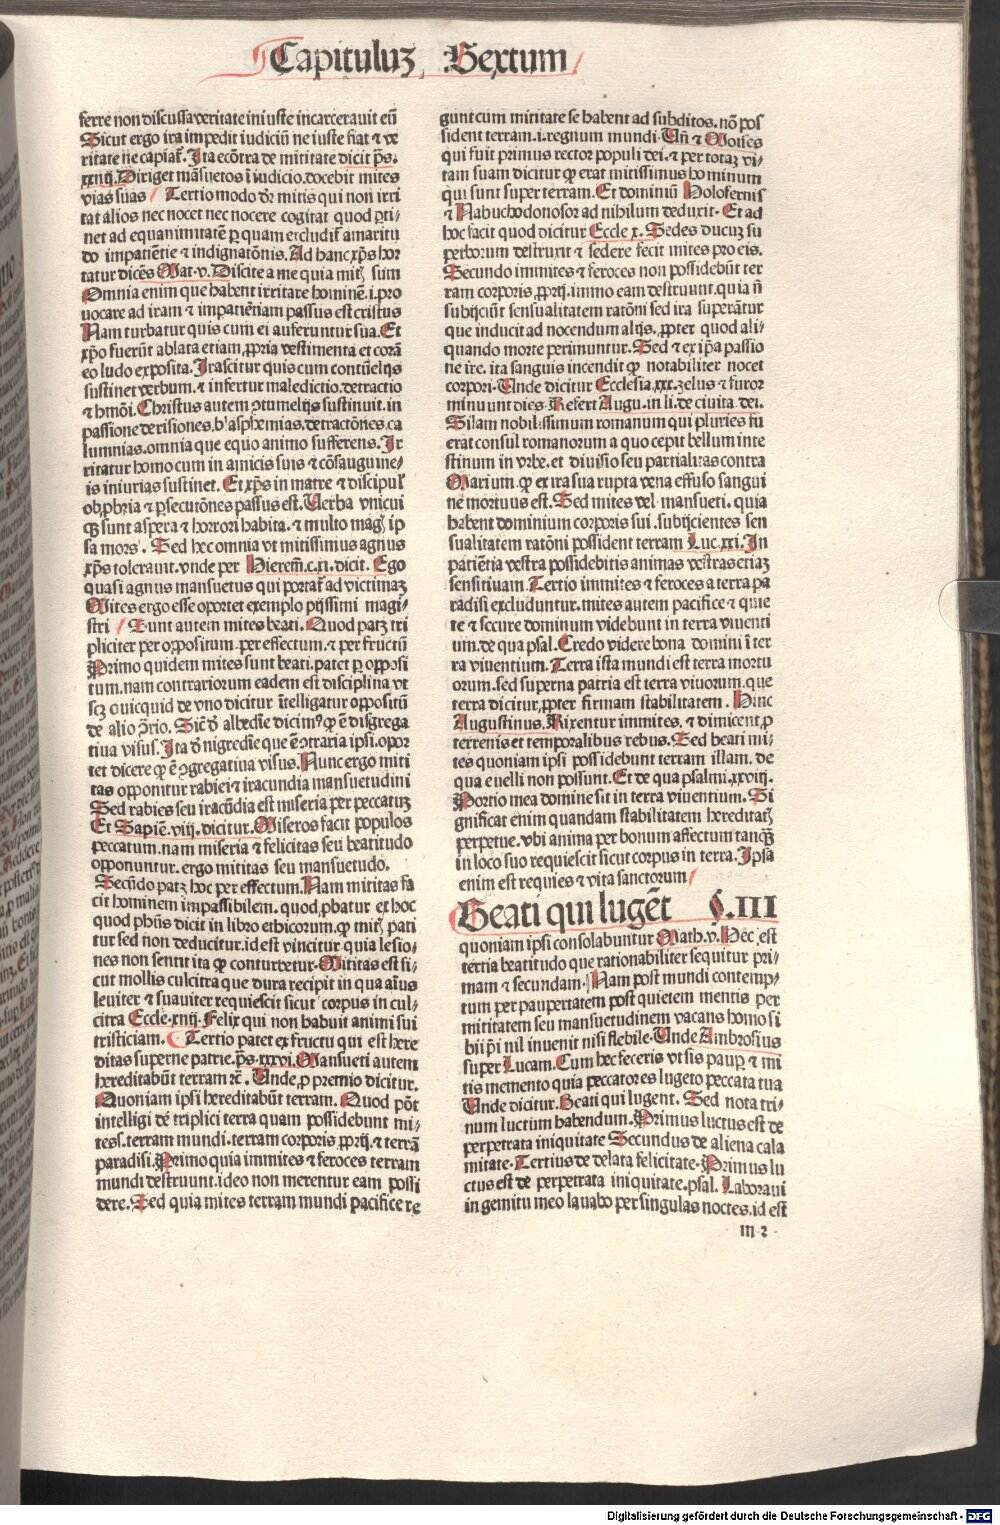 Capituluz Sextum
ferre non discussa veritate iniuste incarcerauit eū
Sicut ergo ira impedit iudiciū ne iuste fiat ⁊ ve
ritate ne capiat̄. Ita ecōtra de mititate dicit p̄s.
xxiiij. Diriget māsuetos ī iudicio. docebit mites
vias suas Tertio modo dr̄ mitis qui non irri
tat alios nec nocet nec nocere cogitat quod ꝑti-
net ad equanimitatē ꝑ quam excludit̄ amaritu
do impatiētie ⁊ indignatōnis. Ad hanc xp̄s hor
tatur dicēs Mat. v. Discite a me quia mitꝭ sum
Omnia enim que habent irritare hominē. i. pro
uocare ad iram ⁊ impatiētiam passus est cristus
Nam turbatur quis cum ei auferuntur sua. Et
xp̄o fuerūt ablata etiam ꝓpria vestimenta et corā
eo ludo exposita. Irascitur quis cum contūelijs
sustinet verbum. ⁊ infertur maledictio. detractio
⁊ hmōi. Christus autem ↄtumelijs sustinuit. in
passione derisiones. blasphemias. detractōnes. ca
lumnias. omnia que equo animo sufferens. Ir
ritatur homo cum in amicis suis ⁊ cōsanguine/
is iniurias sustinet. Et xp̄s in matre ⁊ discipul̄
obꝓbria ⁊ ꝑsecutōnes passus est. Verba vnicui
qꝫ sunt aspera ⁊ horrori habita. ⁊ multo magꝭ ip
sa mors. Sed hec omnia vt mitissimus agnus
xp̄s tolerauit. vnde per Hierem̄. c. xi. dicit. Ego
quasi agnus mansuetus qui portat̄ ad victimaz
Mites ergo esse oportet exemplo pijssimi magi-
stri Sunt autem mites beati. Quod patꝫ tri
pliciter per oppositum. per effectum. ⁊ per fructū
Primo quidem mites sunt beati. patet ꝑ opposi
tum. nam contrariorum eadem est disciplina vt
scꝫ quicquid de vno dicitur ītelligatur oppositū
de alio ꝯrio. Sic d̄ albedīe dicimꝰ ꝙ ē disgrega
tiua visus. Ita d̄ nigredie que ē ↄtraria ipsi. opor
tet dicere ꝙ ē ↄgregatiua visus. Nunc ergo miti
tas opponitur rabiei ⁊ iracundia mansuetudini
Sed rabies seu iracūdia est miseria per peccatuz
Et Sapiē. viij. dicitur. Miseros facit populos
peccatum. nam miseria ⁊ felicitas seu beatitudo
opponuntur. ergo mititas seu mansuetudo.
Secūdo patꝫ hoc per effectum. Nam mititas fa
cit hominem impassibilem. quod ꝓbatur ex hoc
quod ph̄us dicit in libro ethicorum. ꝙ mitꝭ pati
tur sed non deducitur. id est vincitur quia lesio-
nes non sentit ita ꝙ conturbetur. Mititas est si-
cut mollis culcitra que dura recipit in qua aīus
leuiter ⁊ suauiter requiescit sicut corpus in cul-
citra Eccle. xiiij. Felix qui non habuit animi sui
tristiciam. Tertio patet ex fructu qui est here
ditas superne patrie. p̄s. xxxvi. Mansueti autem
hereditabūt terram ⁊c̄. Unde ꝓ premio dicitur.
Quoniam ipsi hereditabūt terram. Quod pōt
intelligi de triplici terra quam possidebunt mi-
tes. s. terram mundi. terram corporis ꝓprij. ⁊ terrā
paradisi. Primo quia immites ⁊ feroces terram
mundi destruunt. ideo non merentur eam possi
dere. Sed quia mites terram mundi pacifice re
gunt cum mititate se habent ad subditos. nō pos
sident terram. i. regnum mundi. Un̄ ⁊ Moises
qui fuit primus rector populi dei. ⁊ per totaz vi-
tam suam dicitur ꝙ erat mitissimus hominum
qui sunt super terram. Et dominiū Holofernis
⁊ Nabuchodonosor ad nihilum deduxit. Et ad
hoc facit quod dicitur Eccle x. Sedes ducuz su
perborum destruxit ⁊ sedere fecit mites pro eis.
Secundo immites ⁊ feroces non possidebūt ter
ram corporis ꝓprij. immo eam destruunt. quia n̄
subijciūt sensualitatem ratōni sed ira superātur
que inducit ad nocendum alijs. ꝓpter quod ali-
quando morte perimuntur. Sed ⁊ ex ip̄a passio
ne ire. ita sanguis incendit ꝙ notabiliter nocet
corpori. Unde dicitur Ecclesia. xxx. zelus ⁊ furor
minuunt dies. Refert Augu. in li. de ciuita. dei.
Sillam nobilissimum romanum qui pluries fu
erat consul romanorum a quo cepit bellum inte
stinum in vrbe. et diuisio seu partialitas contra
Marium. ꝙ ex ira sua rupta vena effuso sangui
ne mortuus est. Sed mites vel mansueti. quia
habent dominium corporis sui. subijcientes sen
sualitatem ratōni possident terram Luc. xxi. In
patiētia vestra possidebitis animas vestras etiaz
sensitiuam. Tertio immites ⁊ feroces a terra pa
radisi excluduntur. mites autem pacifice ⁊ quie
te ⁊ secure dominum videbunt in terra viuenti
um. de qua psal. Credo videre bona domini ī ter
ra viuentium. Terra ista mundi est terra mortu
orum. sed superna patria est terra viuorum. que
terra dicitur. ꝓpter firmam stabilitatem. Hinc
Augustinus. Rixentur immites. ⁊ dimicent ꝓ
terrenis et temporalibus rebus. Sed beati mi-
tes quoniam ipsi possidebunt terram illam. de
qua euelli non possunt. Et de qua psalmi. xxviij.
Portio mea domine sit in terra viuentium. Si
gnificat enim quandam stabilitatem hereditatꝭ
perpetue. vbi anima per bonum affectum tanqꝫ
in loco suo requiescit sicut corpus in terra. Ipsa
enim est requies ⁊ vita sanctorum
Beati qui lugēt §. III
quoniam ipsi consolabuntur Math. v. Hec est
tertia beatitudo que rationabiliter sequitur pri-
mam ⁊ secundam. Nam post mundi contemp-
tum per paupertatem post quietem mentis per
mititatem seu mansuetudinem vacans homo si
bi ip̄i nil inuenit nisi flebile. Unde Ambrosius
super Lucam. Cum hec feceris vt sis pauꝑ ⁊ mi
tis memento quia peccator es lugeto peccata tua
Unde dicitur. Beati qui lugent. Sed nota tri-
num luctum habendum. Primus luctus est de
perpetrata iniquitate Secundus de aliena cala
mitate. Tertius de delata felicitate. Primus lu
ctus est de perpetrata iniquitate. psal. Laboraui
in gemitu meo lauabo per singulas noctes. id est
m 2
Digitalisierung gefördert durch die Deutsche Forschungsgemeinschaft - DFG